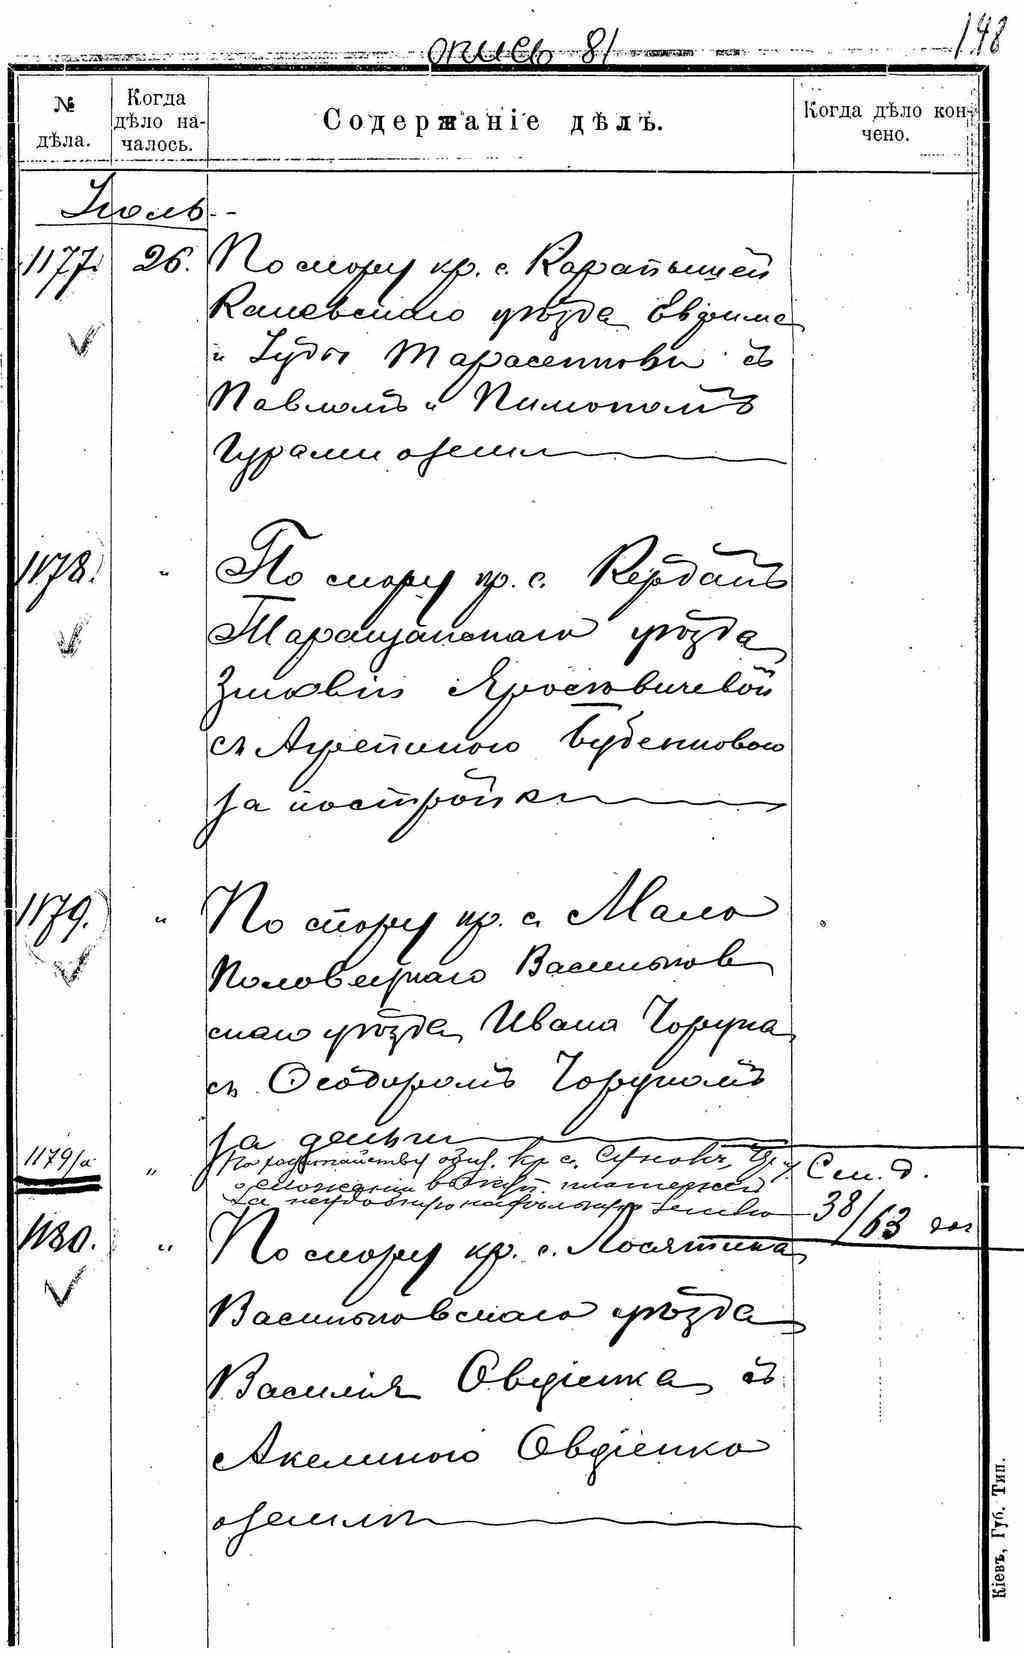 опись 81
148
№ дѣла.
Когда дѣло началось.
Содержаніе дѣлъ.
Когда дѣло кончено.
Іюль
1177. 26. По спору кр. с. Карапышей
Каневскаго уѣзда Евфима
и Іуды Тарасенковы съ
Павломъ и Пимономъ
Гурами о земли
1178. " По спору кр. с. Кердапъ
Таращанскаго уѣзда
Зиновіи Яросковичевой
съ Агрепиною Буденковою
за постройки
1179. " По спору кр. с. Мало
Половецкаго Васильков
скаго уѣзда Ивана Чорука
съ Ѳеодоромъ Чорукомъ
за деньги
1179/а " По ходатайству общ. кр. с.
сложеніи выкуп. платежей
за неудобную землю
См. д.
38/63
1180. " По спору кр. с. Лосятина
Васильковскаго уѣзда
Василія Овдіенка съ
Акелиною Овдіенко
о земли
Кіевъ, Губ. Тип.